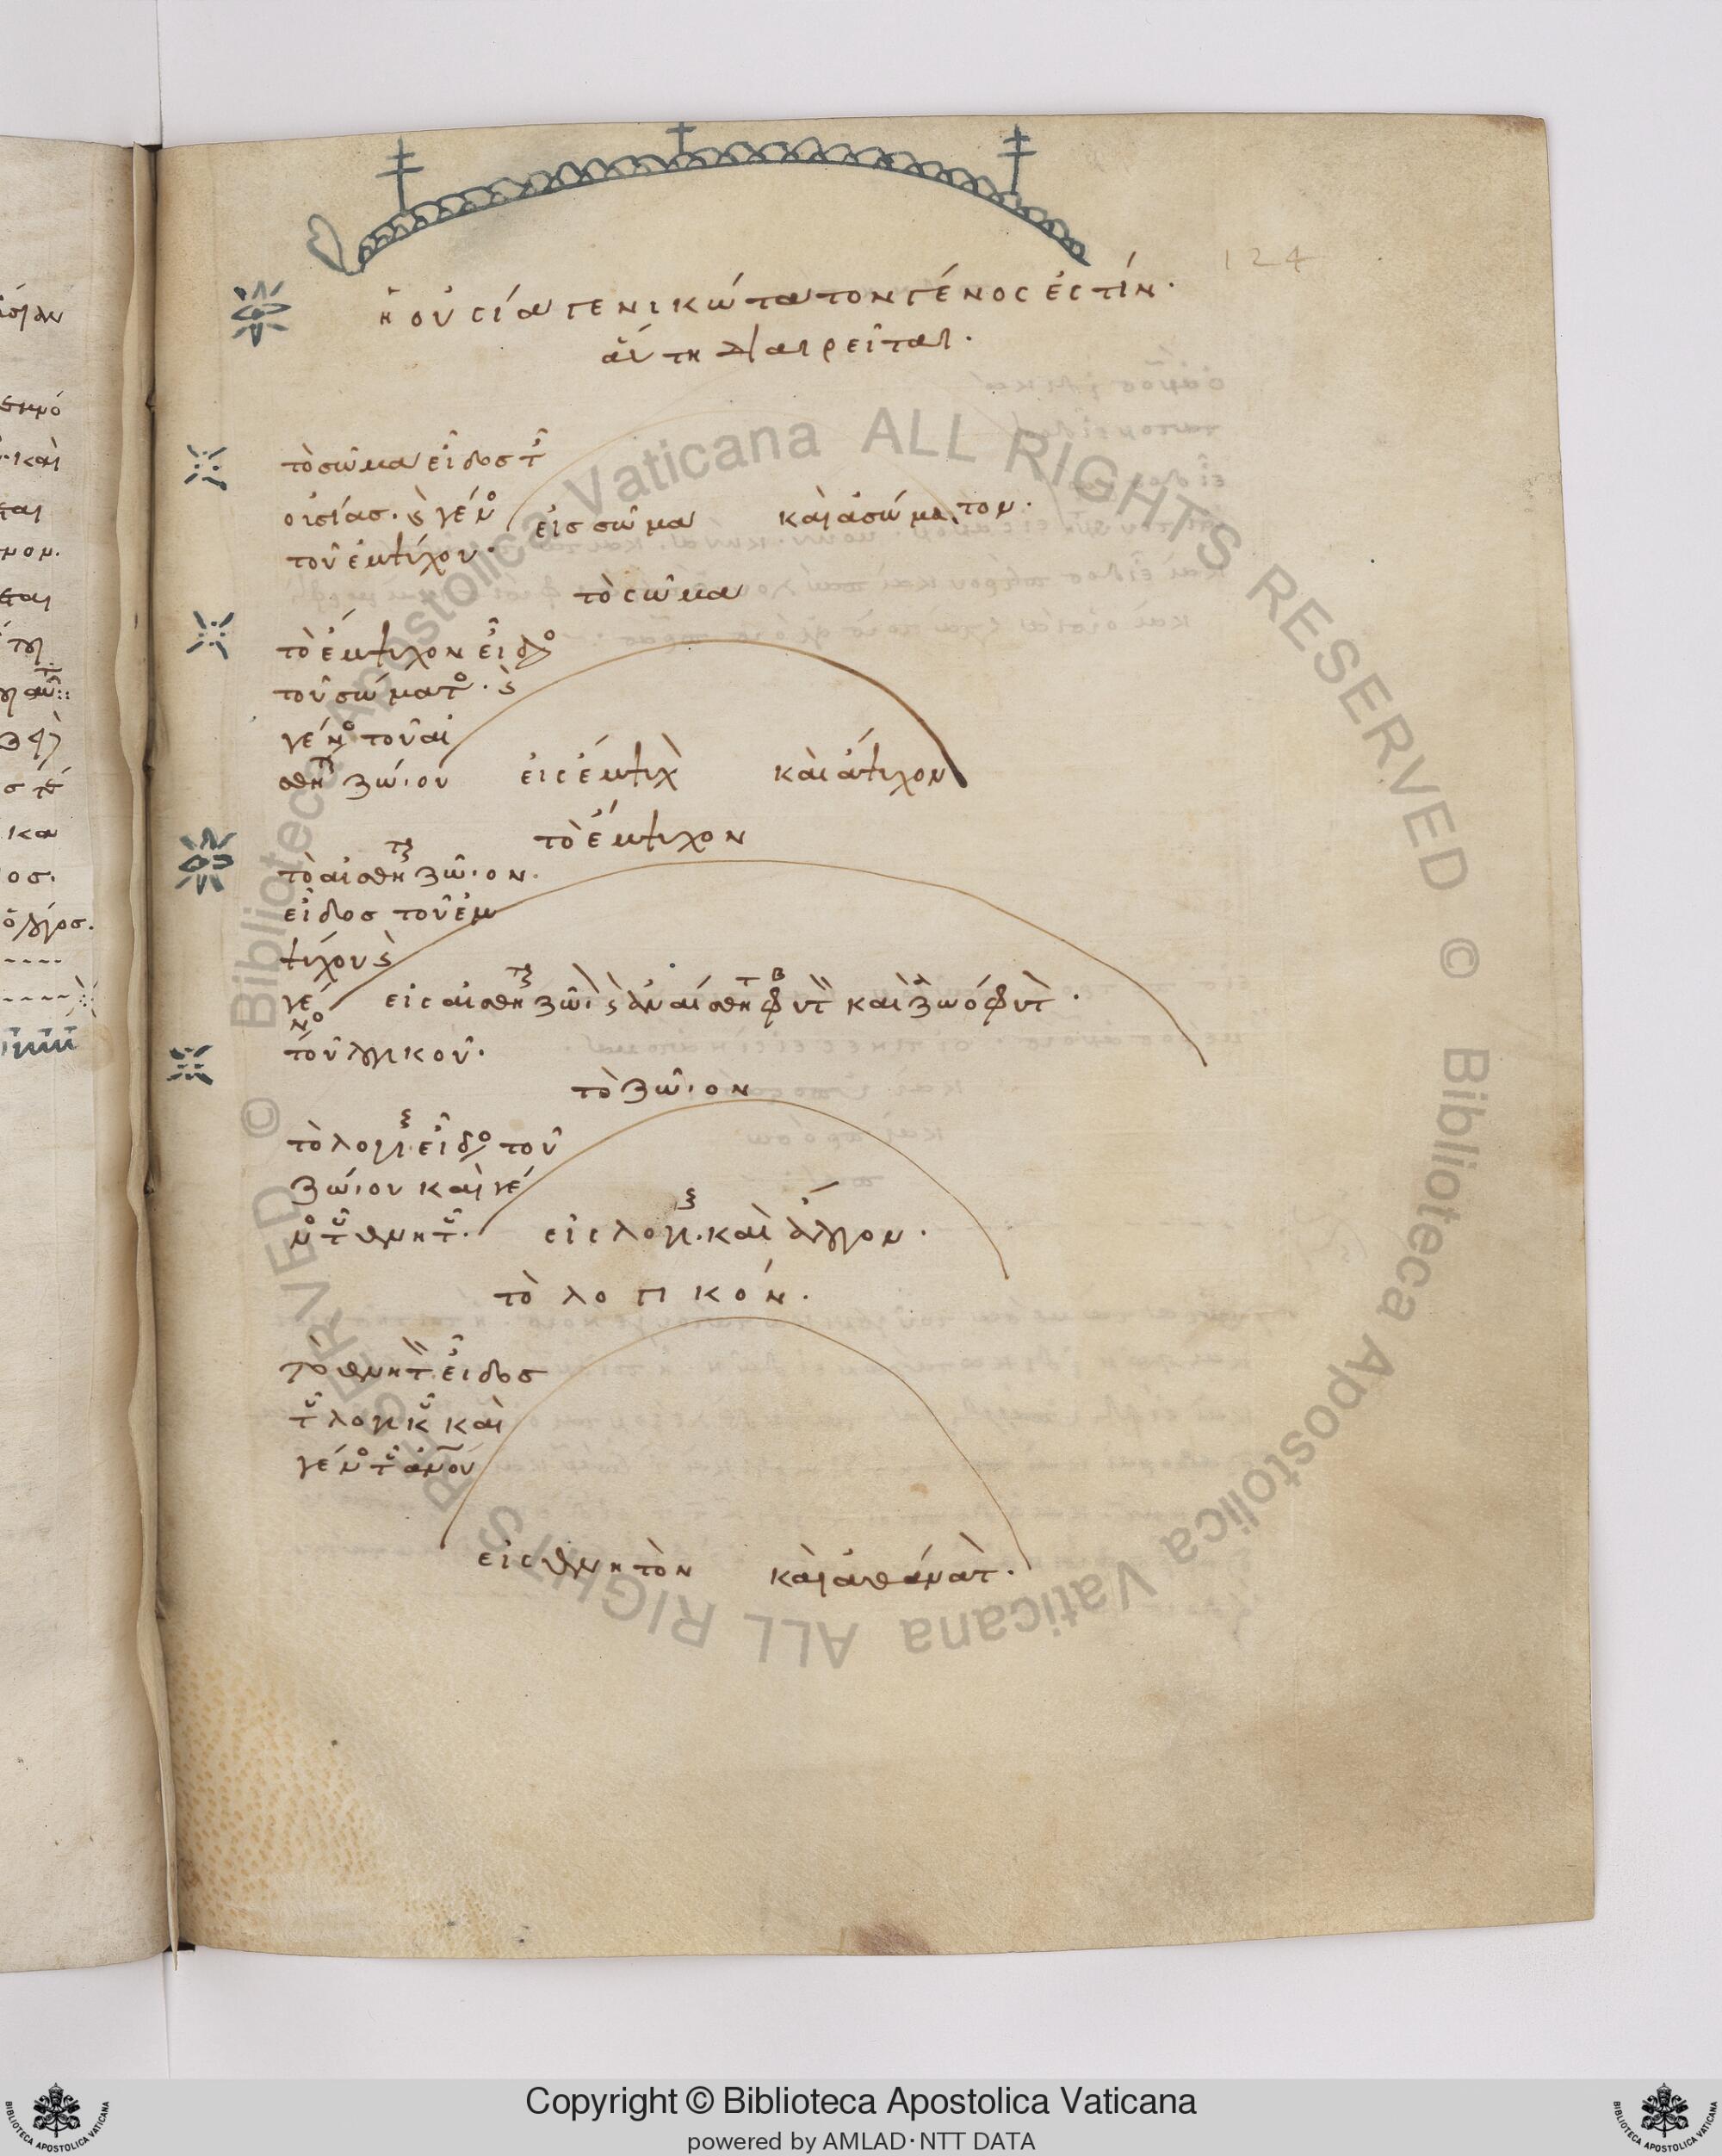 124
ἡ οὐσία γενικώτατον γένος ἐστίν·
αὕτη διαιρεῖται·
τὸ σῶμα εἶδος τῆ
οὐσίας· ϛ̀ γένο
τοῦ ἐμψύχου·
εἰς σῶμα καὶ ἀσώματον·
τὸ σῶμα
τὸ ἔμψυχον εἶδο
τοῦ σώματο· ϛ̀
γένο τοῦ αἰ
σθητ ζώιου
εἰς ἔμψυχ̀ καὶ ἄψυχον
τὸ ἔμψυχον
τὸ αἰσθητ ζῶιον·
εἶδος τοῦ ἐμ
ψύχου ϛ̀
γέ
νο
τοῦ λογικοῦ·
εἰς αἰσθητ ζῶι ϛ̀ ἀναίσθητ φυτ̀ καὶ ζωόφυτ̀·
τὸ ζῶιον
τὸ λογι εἶδο τοῦ
ζώιου καὶ γέ
νο τοῦ θνητοῦ·
εἰς λογι· καὶ ἄλογον·
τὸ λογικόν·
τὸ θνητ̀ εἶδος
τοῦ λογικοῦ καὶ
γένο τοῦ ἀν̅ου
εἰς θνητὸν καὶ ἀθάνατ̀·
© Biblioteca Apostolica Vaticana ALL RIGHTS RESERVED © Biblioteca Apostolica Vaticana ALL RIGHTS RESERVED
Copyright © Biblioteca Apostolica Vaticana
powered by AMLAD·NTT DATA
BIBLIOTECA APOSTOLICA VATICANA
BIBLIOTECA APOSTOLICA VATICANA